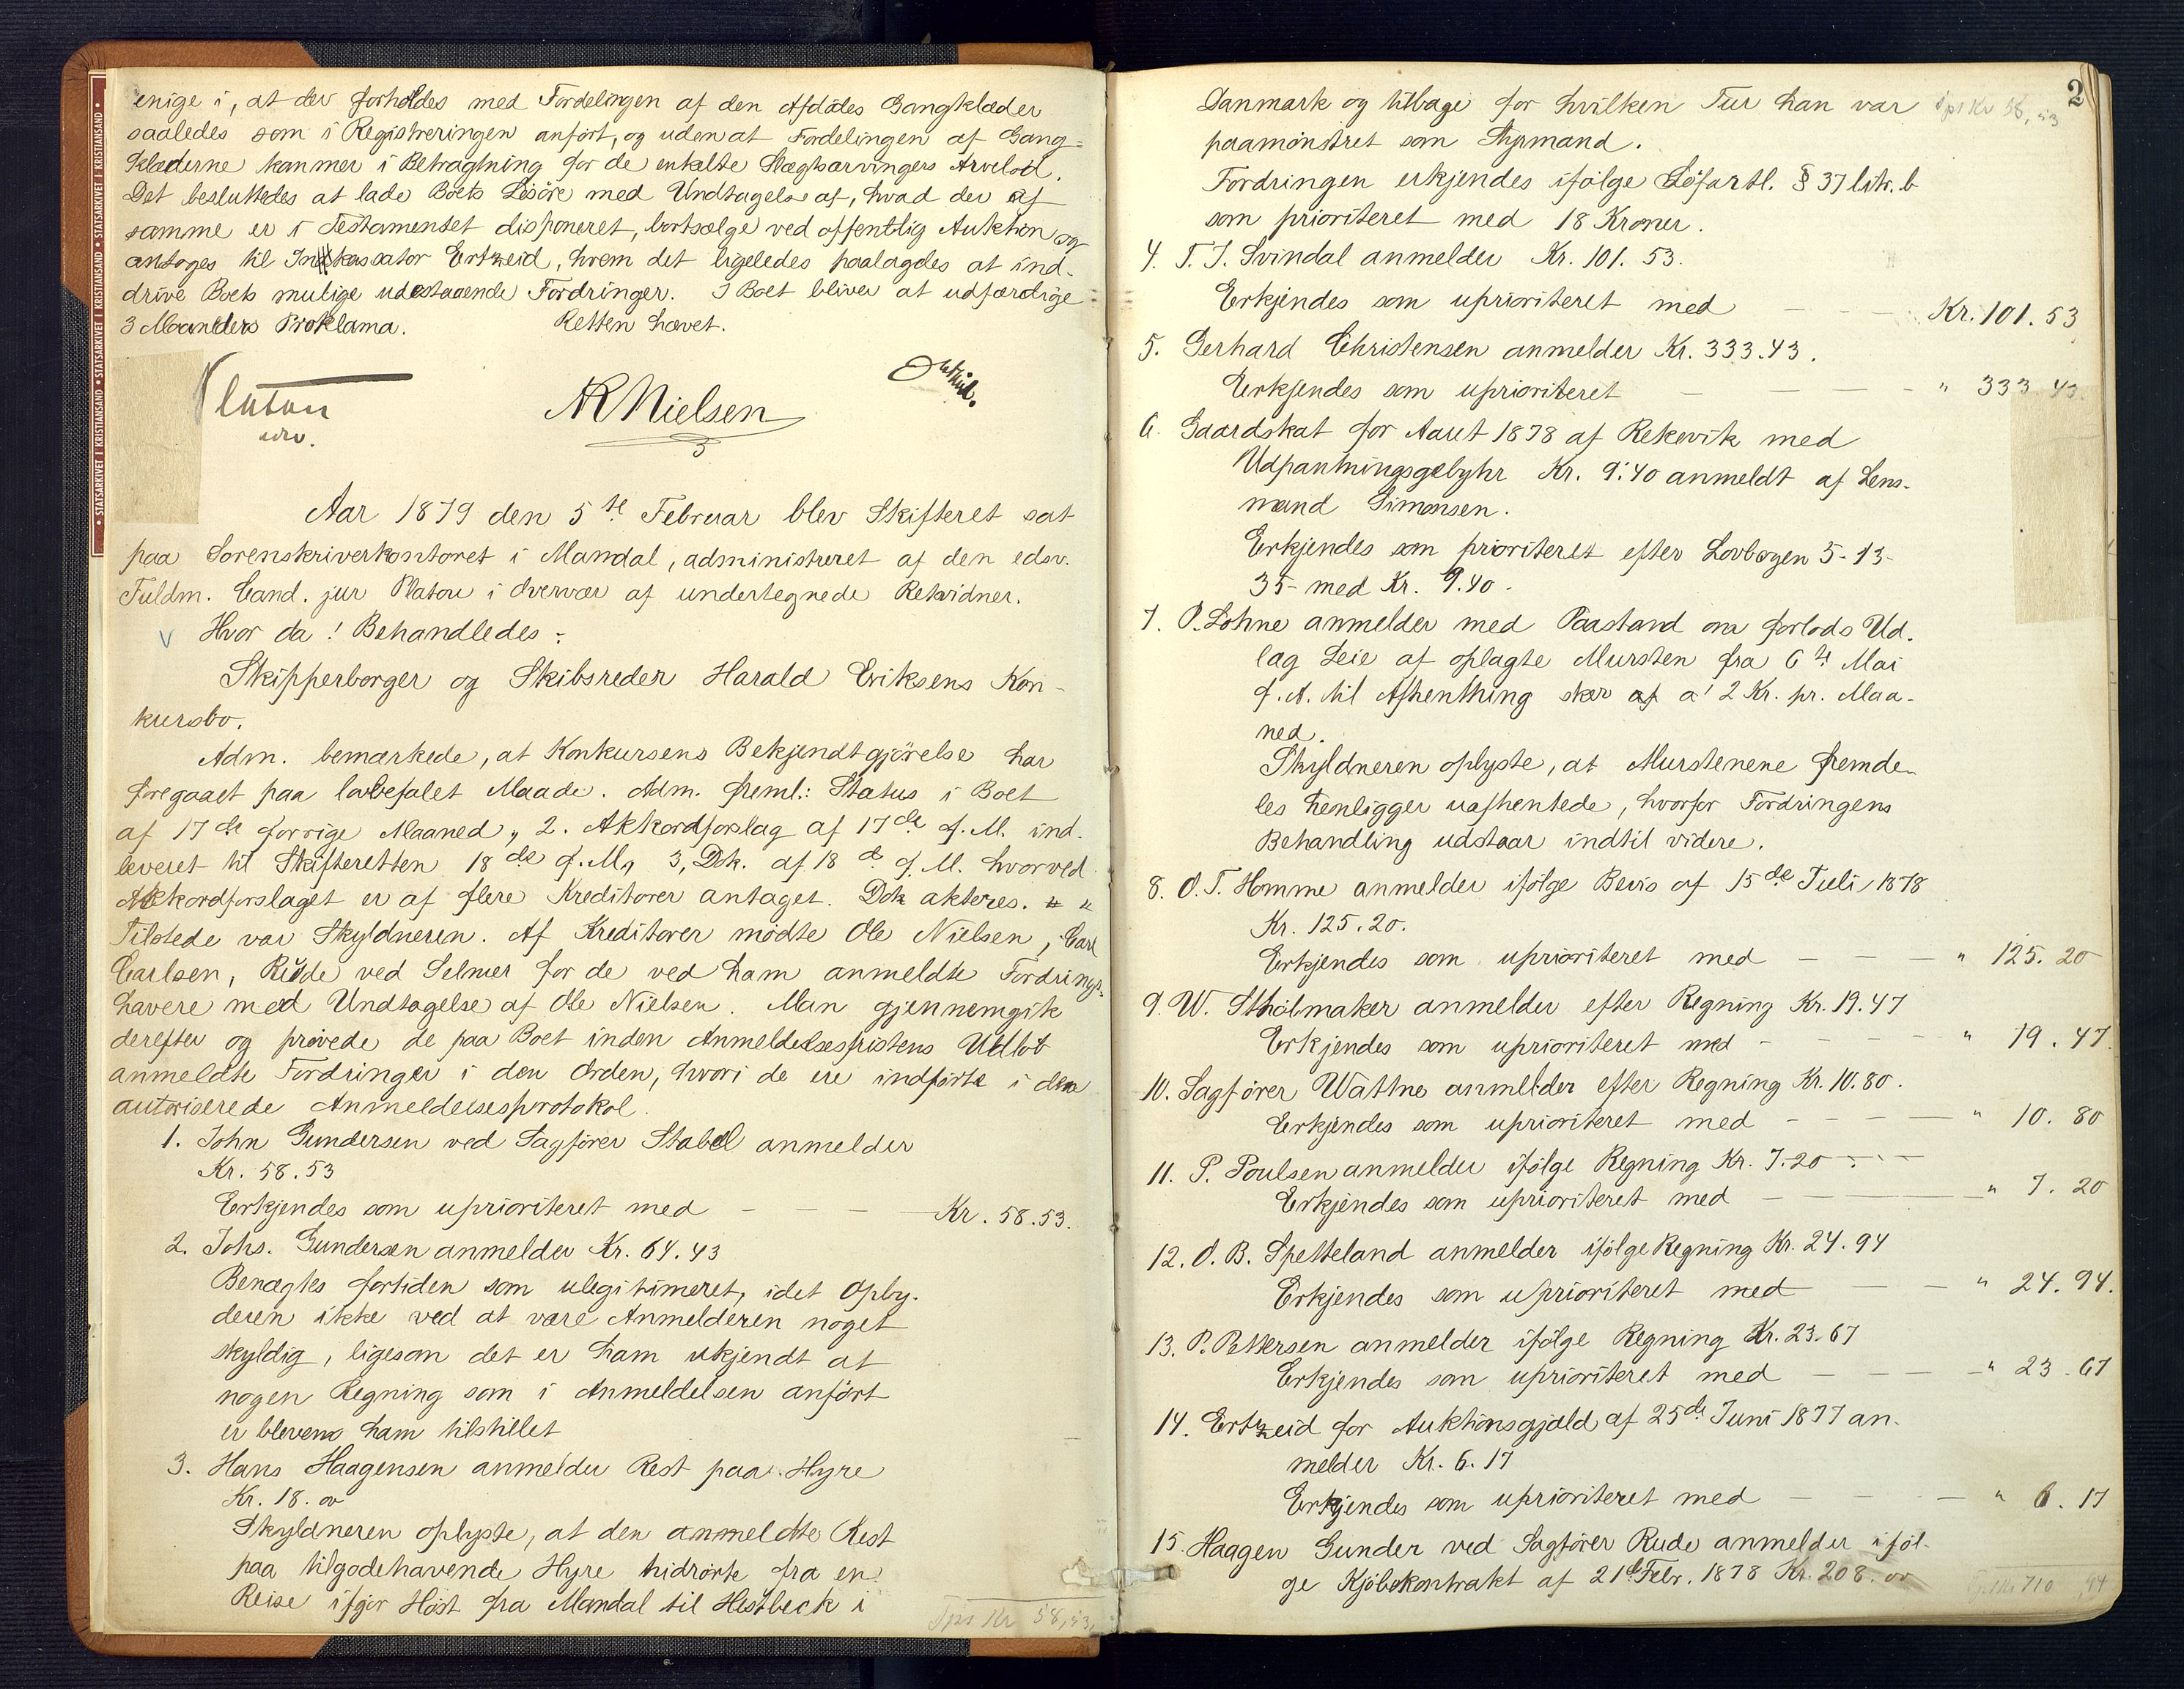 enige i, at der forholdes med Fordelingen af den Afdödes Gangklæder
saaledes som i Registreringen anfört, og uden at Fordelingen af Gang=
klæderne kommer i Betragtning for de enkelte Slægtsarvingers Arvelod.
Det besluttedes at lade Boets Lösöre med Undtagelse af, hvad der af
samme er i Testamentet disponeret, bortsælge ved offentlig Auktion og
antoges til Inkassator Ertzeid, hvem det ligeledes paalagdes at ind-
drive Boets mulige udestaaende Fordringer. I Boet bliver at udfærdige
3 Maaneders Proklama. Retten hævet.
Platou
edsv.
NR Nielsen
Aar 1879 den 5te Februar blev Skifteret sat
paa Sorenskriverkontoret i Mandal, administreret af den edsv.
Fuldm. Cand. jur Platou i Overvær af undertegnede Retsvidner.
Hvor da! Behandledes:
Skipperborger og Skibsreder Harald Eriksens Kon-
kursbo.
Adm. bemærkede, at Konkursens Bekjendtgjörelse har
foregaaet paa lovbefalet Maade. Adm. freml.: Status i Boet
af 17de forrige Maaned, 2. Akkordforslag af 17de f. M. ind-
leveret til Skifteretten 18de f. M, 3, Dok. af 18de f. M. hvorved
Akkordforslaget er af flere Kreditorer antaget. Dok akteres. " "
Tilstede var Skyldneren. Af Kreditorer mödte Ole Nielsen, Carl
Carlsen, Rude ved Selmer for de ved ham anmeldte Fordrings-
havere med Undtagelse af Ole Nielsen. Man gjennemgik
derefter og prövede de paa Boet inden Anmeldelsesfristens Udlöb
anmeldte Fordringer i den Orden, hvori de ere indförte i den
autoriserede Anmeldelsesprotokol.
1. John Gundersen ved Sagförer Stabell anmelder
Kr. 58.53
Erkjendes som uprioriteret med - - - Kr. 58.53.
2. Johs. Gundersen anmelder Kr. 64.43
Benægtes fortiden som ulegitimeret, idet Opby-
deren ikke ved at være Anmelderen noget
skyldig, ligesom det er ham ukjendt at
nogen Regning som i Anmeldelsen anfört
er bleven ham tilstillet
3. Hans Haagensen anmelder Rest paa Hyre
Kr. 18. oo
Skyldneren oplyste, at den anmeldte Rest
paa tilgodehavende Hyre hidrörte fra en
Reise ifjor Höst fra Mandal til Hestbeck i
Tps Kr 58,53.
2
Danmark og tilbage for hvilken Tur han var
Tps Kr 58,53
paamönstret som Styrmand.
Fordringen erkjendes ifölge Söfartl. § 37 litr. b
som prioriteret med 18 Kroner.
4. T. J. Svindal anmelder Kr. 101. 53.
Erkjendes som uprioriteret med - - - Kr. 101. 53
5. Gerhard Christensen anmelder Kr. 333.43.
Erkjendes som uprioriteret - - - " 333.43.
6. Gaardskat for Aaret 1878 af Rekevik med
Udpantningsgebyhr Kr. 9.40 anmeldt af Lens-
mand Simonsen.
Erkjendes som prioriteret efter Lovbogen 5-13-
35- med Kr. 9.40.
7. O. Lohne anmelder med Paastand om forlods Ud-
læg Leie af oplagte Mursten fra 6te Mai
f. A. til Afhentning sker af a' 2 Kr. pr. Maa-
ned.
Skyldneren oplyste, at Murstenene fremde-
les henligger uafhentede, hvorfor Fordringens
Behandling udstaar indtil videre.
8. O. T. Homme anmelder ifölge Bevis af 15de Juli 1878
Kr. 125.20.
Erkjendes som uprioriteret med - - - " 125. 20
9. W. Stholmaker anmelder efter Regning Kr. 19.47
Erkjendes som uprioriteret med - - - - " 19. 47.
10. Sagförer Wattne anmelder efter Regning Kr. 10.80.
Erkjendes som uprioriteret med - - - - " 10. 80
11. P. Poulsen anmelder ifölge Regning Kr. 7.20
Erkjendes som uprioriteret med - " 7. 20
12. O. B. Spetteland anmelder ifölge Regning Kr. 24.94
Erkjendes som uprioriteret med - - " 24. 94.
13. P. Pettersen anmelder ifölge Regning Kr. 23.67
Erkjendes som uprioriteret med - - - - " 23. 67
14. Ertzeid for Auktionsgjæld af 25de Juni 1877 an-
melder Kr. 6. 17
Erkjendes som uprioriteret med - - - " 6. 17
15. Haagen Gunder ved Sagförer Rude anmelder iföl-
ge Kjöbekontrakt af 21de Febr. 1878 Kr. 208. oo
Tps Kr 710,94
• STATSARKIVET I KRISTIANSAND • STATSARKIVET I KRISTIANSAND • STATSARKIVET I KRISTIANSAND •